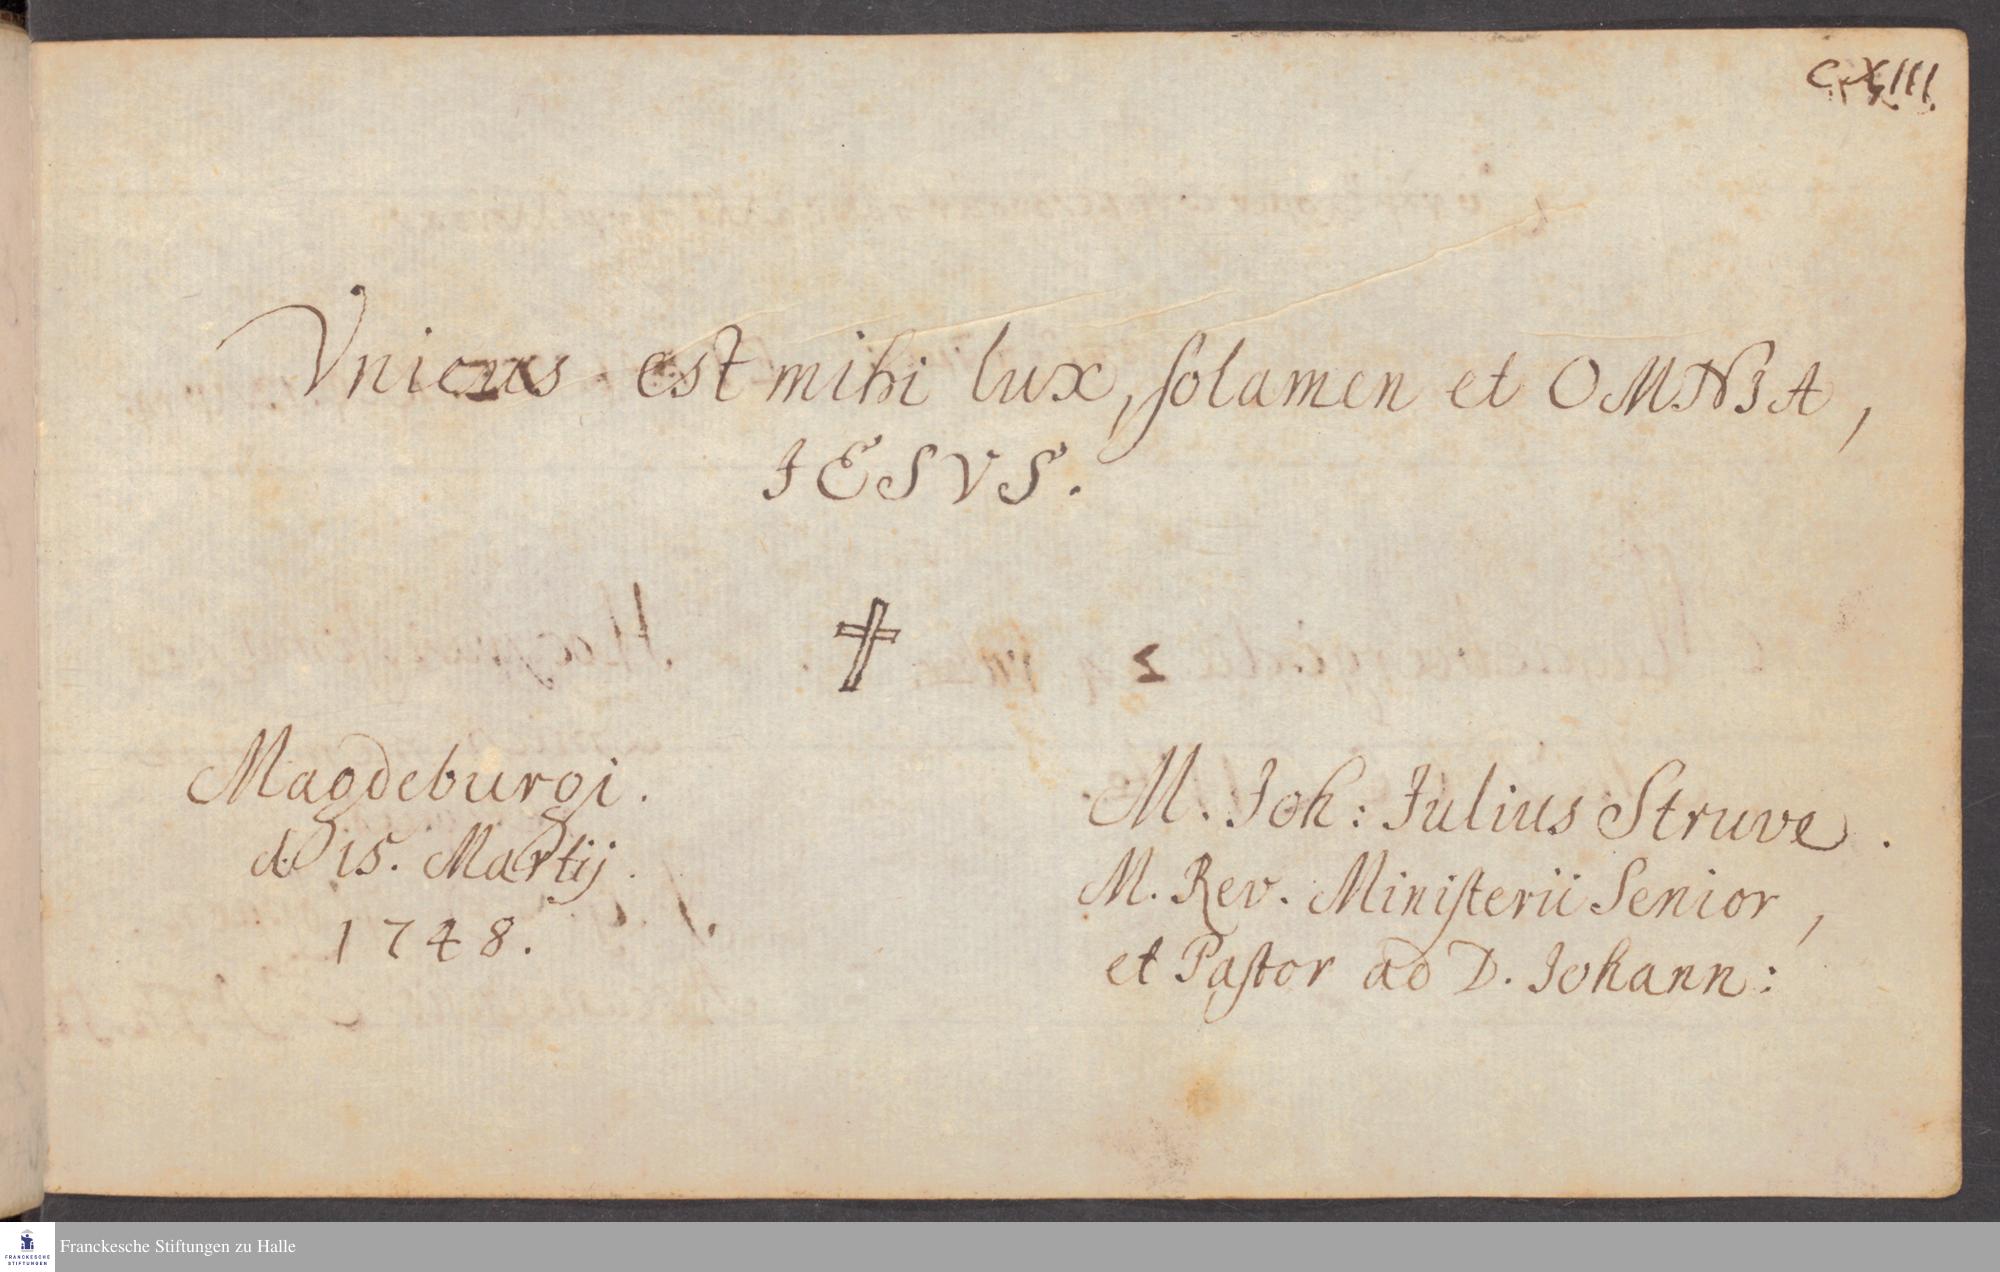 CXIII.
Vnicus est mihi lux, solamen et OMNIA,
IESVS.
Magdeburgi.
d. 15. Martij.
1748.
M. Joh: Julius Struve.
M. Rev. Ministerii Senior,
et Pastor ad D. Johann:
FRANCKESCHE
STIFTUNGEN
Franckesche Stiftungen zu Halle